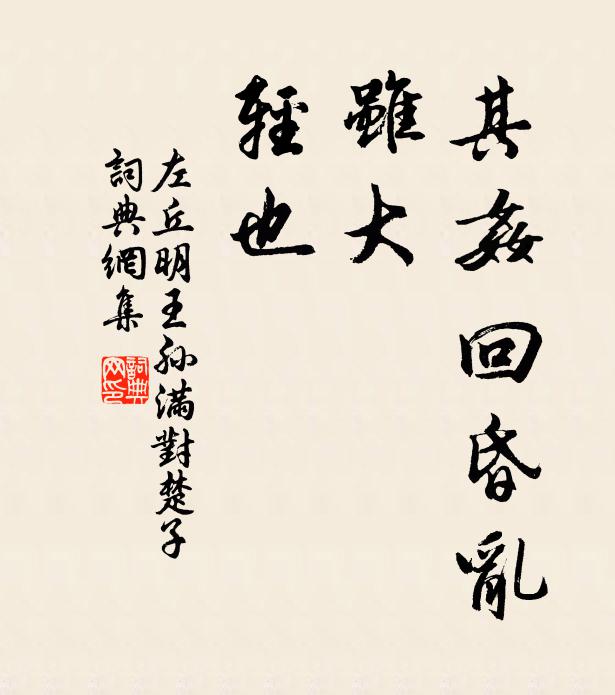 其姦回昏亂
雖大
輕也
左丘明王孫滿對楚子
詞典網集
詞典
网印